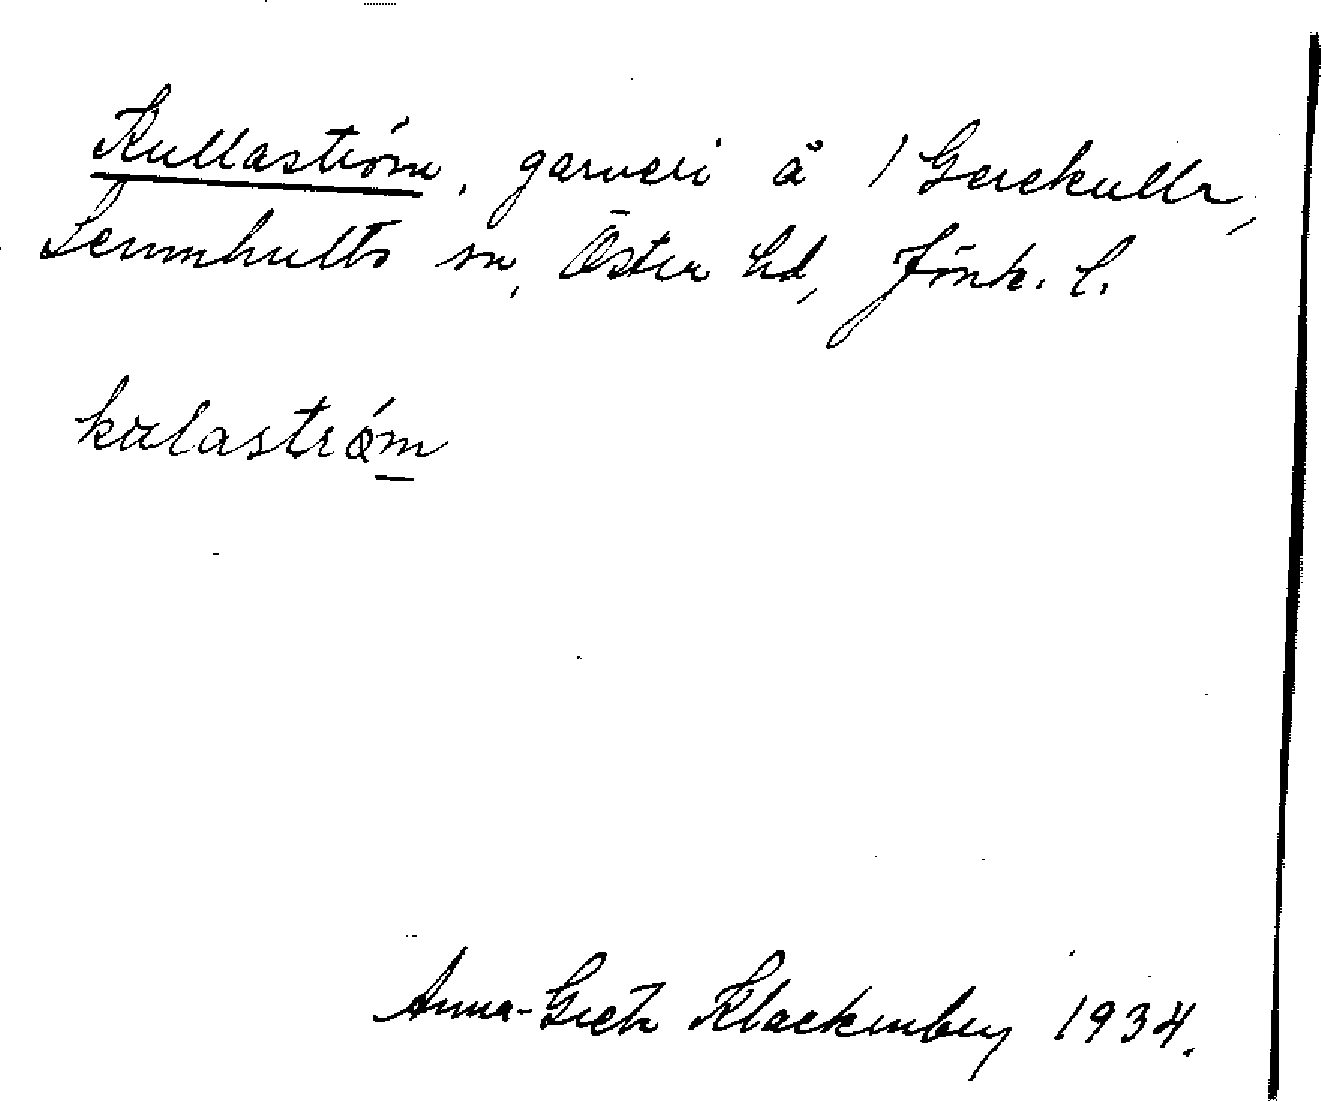 Kullaström, garveri å 1 Gerekulla,
Lemnhults sn, Östra hd, Jönk. l.
kulaström
Anna-Greta Klackenberg 1934.